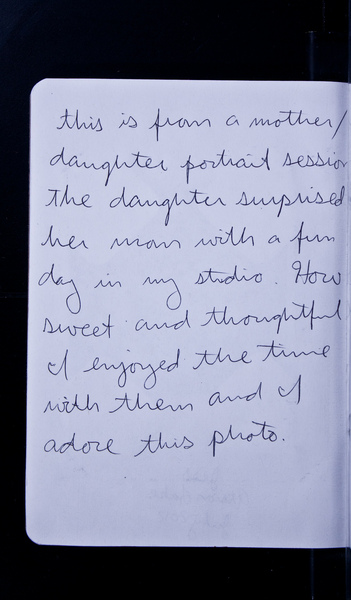 this is from a mother/
daughter portrait session
The daughter surprised
her mom with a fun
day in my studio. How
sweet and thoughtful
I enjoyed the time
with them and I
adore this photo.